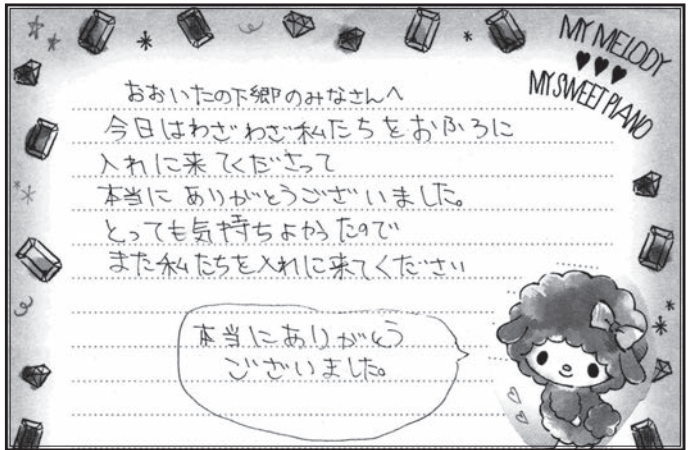 MY MELODY
MY SWEET PIANO
おおいたの下郷のみなさんへ
今日はわざわざ私たちをおふろに
入れに来てくださって
本当にありがとうございました。
とっても気持ちよかったので
また私たちを入れに来てください
本当にありがとう
ございました。